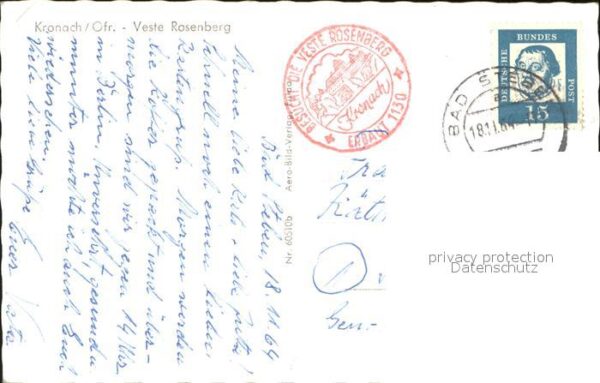 Kronach/Ofr. - Veste Rosenberg
BESUCHT DIE VESTE ROSENBERG
Kronach
ERBAUT 1130
DEUTSCHE
BUNDES
POST
15
BAD STEBEN
18.11.64
Aero-Bild-Verlag
Nr. 60510b
Bad Steben, 18.11.64
Meine liebe
schnell noch einen lieben
Kartengruß. Morgen werden
die Koffer gepackt und über-
morgen sind wir gegen 14 Uhr
in Berlin. Unversehrt, gesund u.
munter möchte ich auch Euch
wiedersehen.
Viele liebe Grüße Euer Vater
privacy protection
Datenschutz